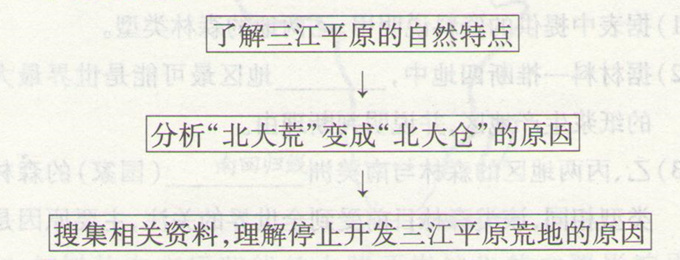 了解三江平原的自然特点
↓
分析“北大荒”变成“北大仓”的原因
↓
搜集相关资料,理解停止开发三江平原荒地的原因